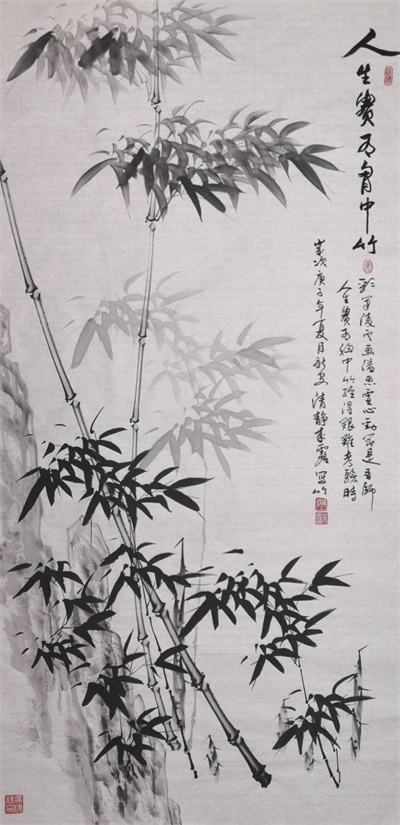 人生贵有胸中竹
彩笔凌云画溢思 虚心劲节是吾师
人生贵有胸中竹 经得艰难考验时
岁次庚子年夏月 清静 写竹